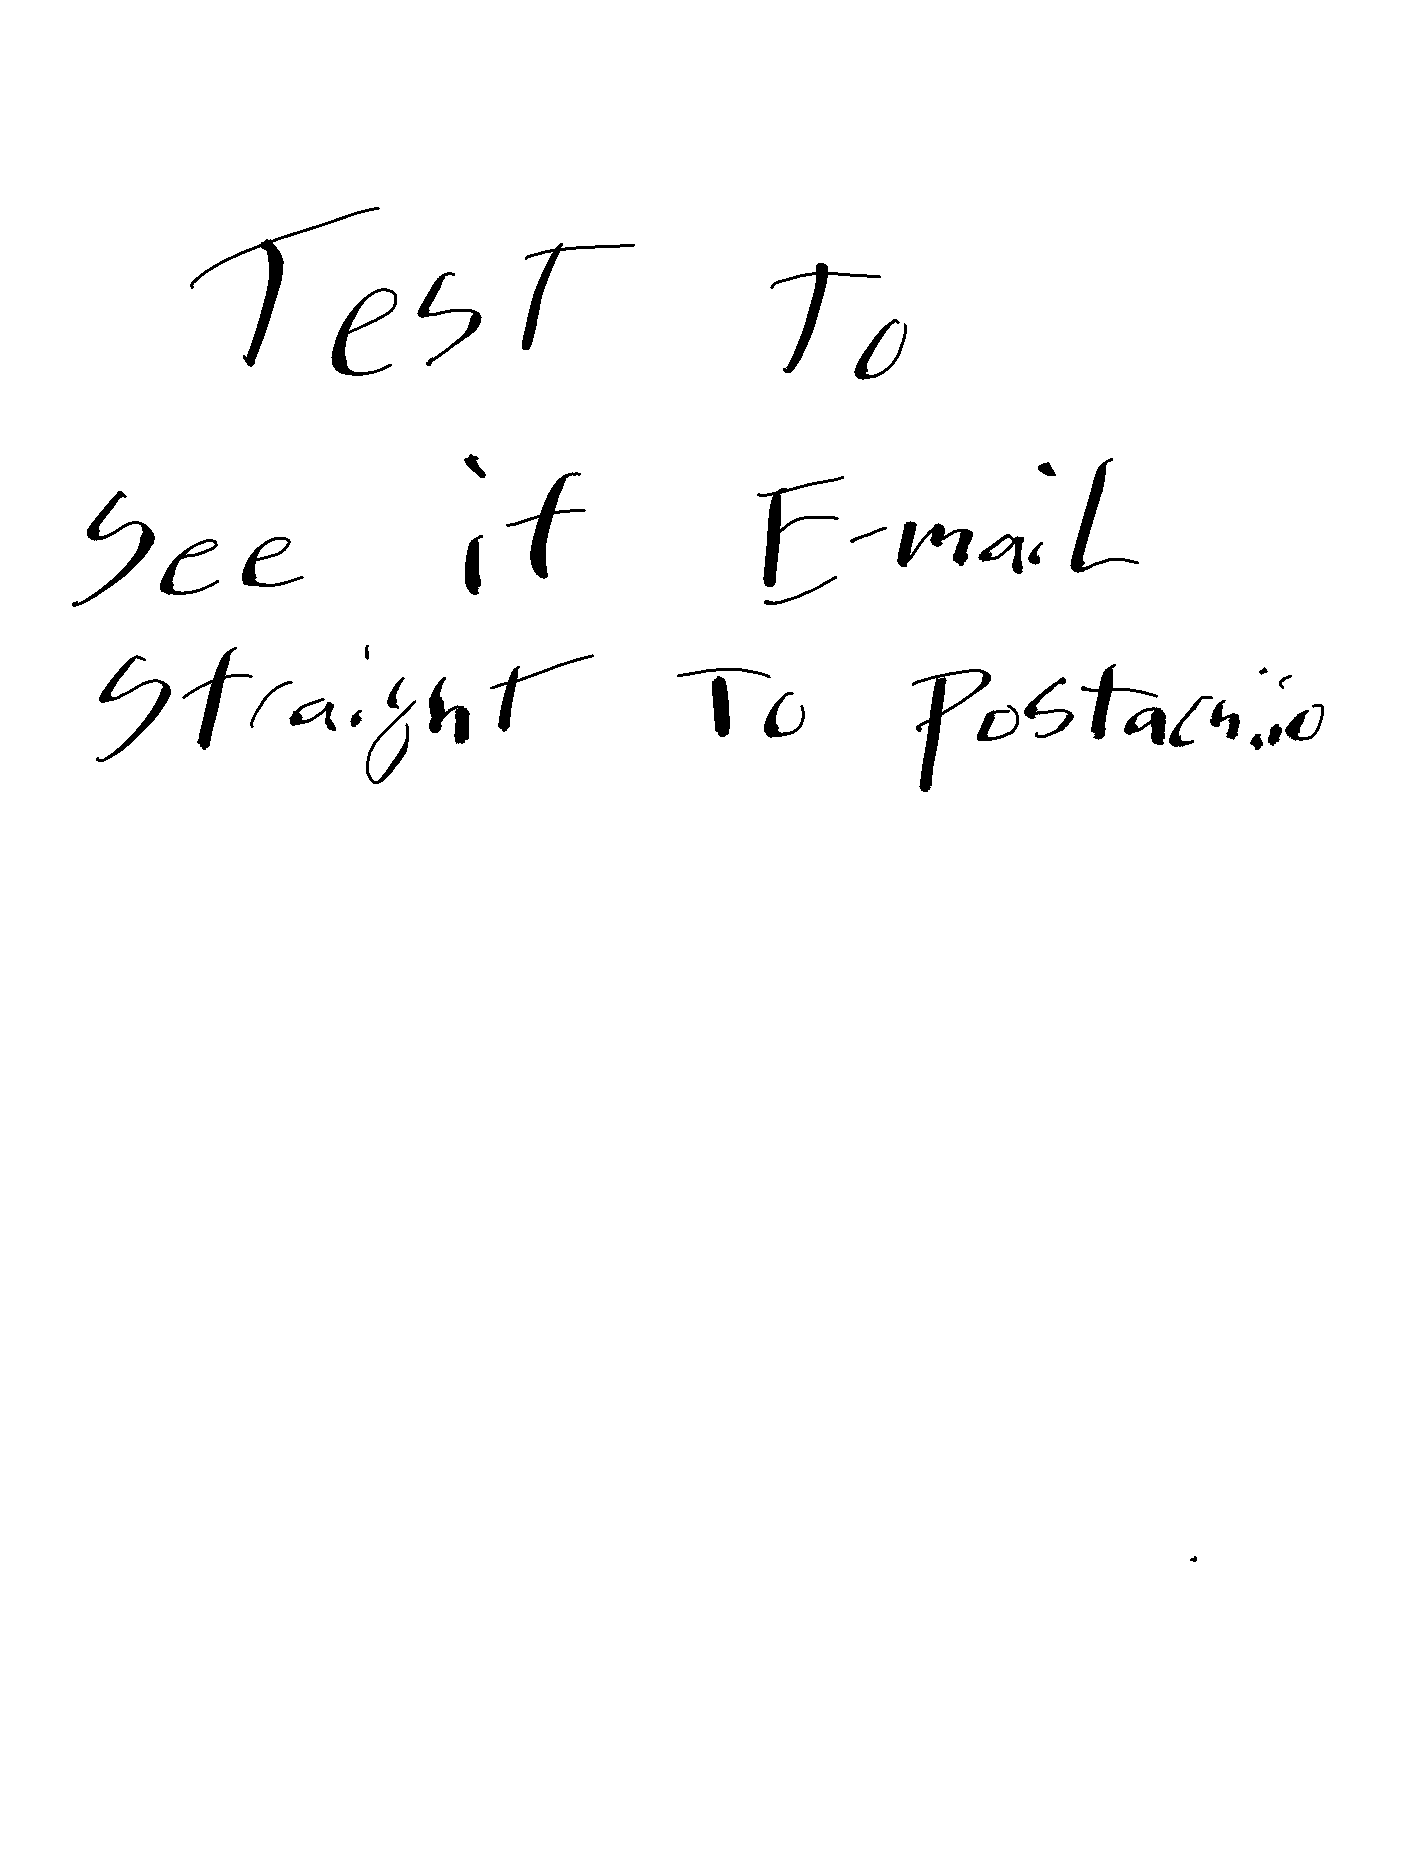 Test To
See if E-mail
Straight To Postach.io